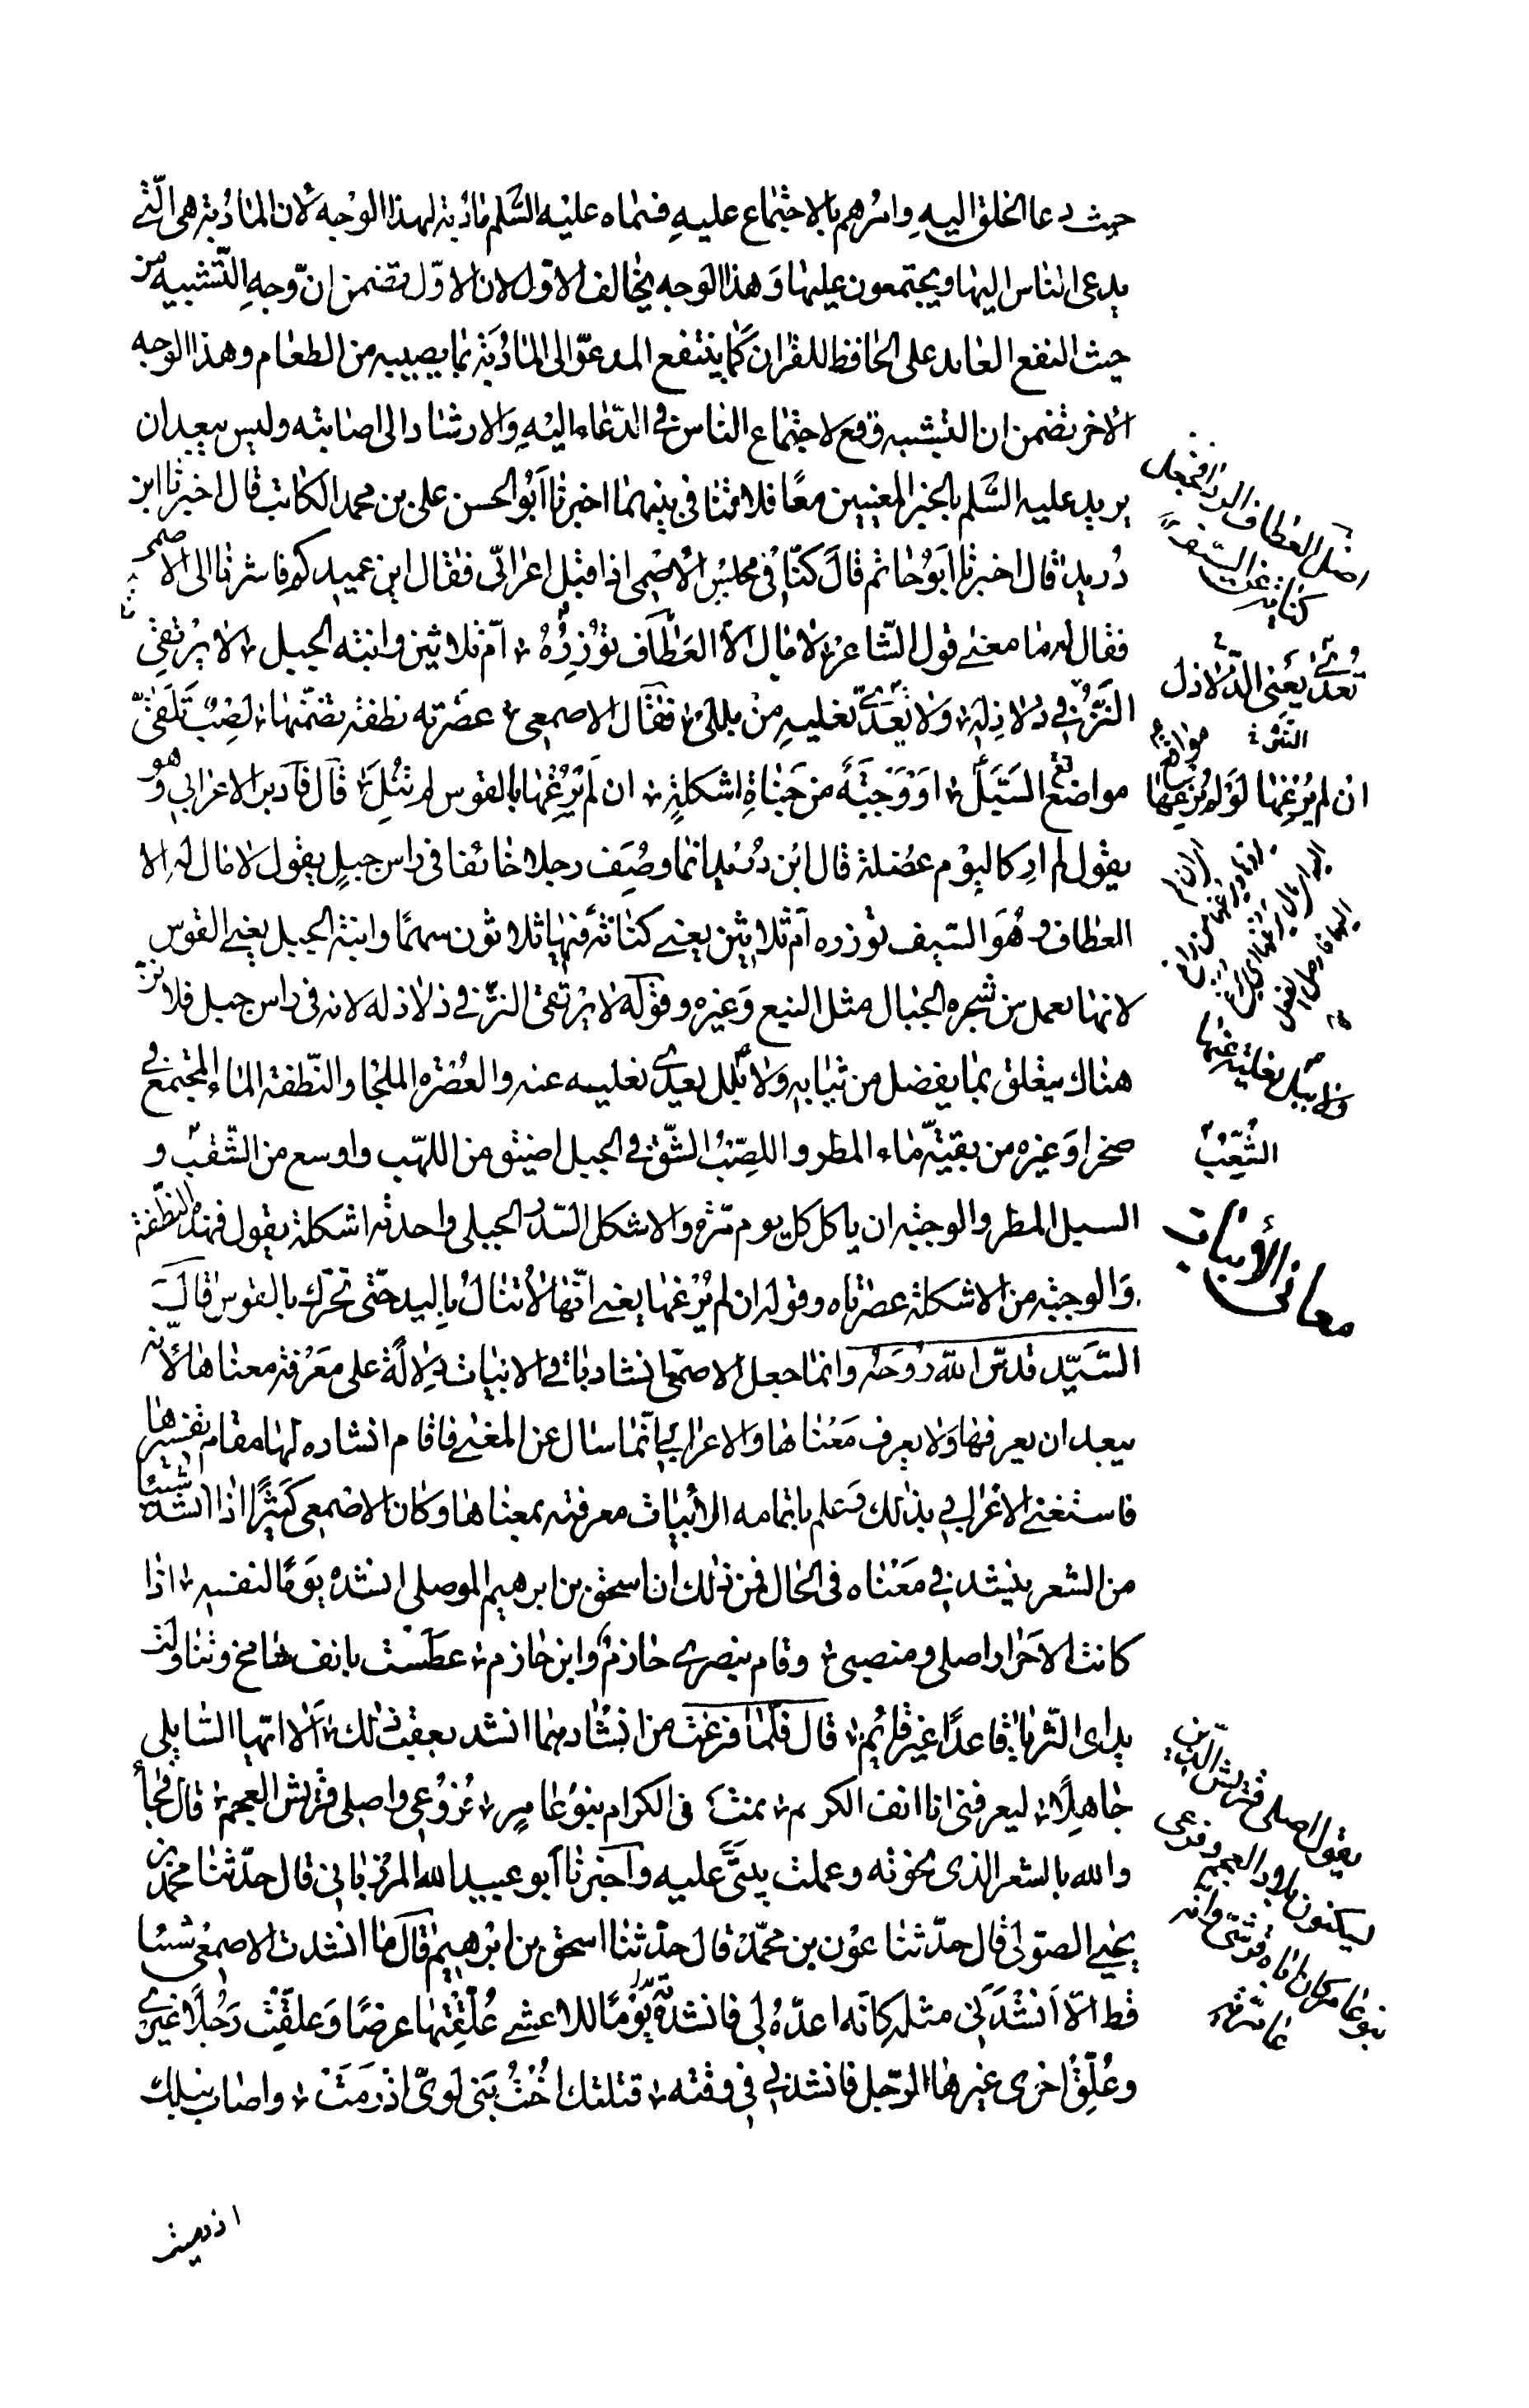 حيث دعا الخلق اليه وامرهم بالاجتماع عليه فسماه عليه السلم مادبة لهذا الوجه لان المادبة هى الّتى
يدعى الناس اليها ويجتمعون عليها وهذا الوجه يخالف الاوّل لان الاوّل تضمن انّ وجه التّشبيه من
حيث النفع العايد على الحافظ للقران كما ينتفع المدعوّ الى المادبة بما يصيبه من الطعام وهذا الوجه
الاخر تضمن ان التشبيه وقع لاجتماع الناس فى الدّعاء اليه والارشاد الى اصابته وليس ببعد ان
يريد عليه السّلم بالخبر المعنيين معًا فلا تنافى بينهما اخبرنا ابو الحسن على بن محمد الكاتب قال اخبرنا ابن
دريد قال اخبرنا ابو حاتم قال كنّا فى مجلس الاصمعى اذ اقبل اعرابىّ فقال اين عميدكم فاشرنا الى الاصمعى
فقال له ما معنى قول الشّاعر لا مال الّا العطاف توزره امّ ثلاثين وابنة الجبل لا يرتقى
النزّ فى ذلاذله ولا يعدّى نعليه من بلل فقال الاصمعى عصرته نطفة تضمّنها لصب تلقّى
مواضع السّبل او وجبة من جناة اشكلة ان لم يرغها بالقوس لم تنل قال فادبر الاعرابى وهو
يقول لم ار كاليوم عضلة قال ابن دريد انما وصف رجلا خائفا فى راس جبل يقول لا مال له الا
العطاف وهو السّيف توزره ام ثلاثين يعنى كنانة فيها ثلاثون سهمًا وابنة الجبل يعنى القوس
لانها تعمل من شجره الجبال مثل النبع وغيره وقوله لا يرتقى النزّ فى ذلاذله لانه فى راس جبل فلا نزّ
هناك يتعلق بما يفضل من ثيابه ولا بلل يعدّى نعليه عنه والعصره الملجا والنّطفة الماء المجتمع فى
صخر او غيره من بقيّة ماء المطر واللصب الشّق فى الجبل اضيق من اللهب واوسع من الشّقب و
السبل المطر والوجبة ان ياكل كل يوم مرّة والاشكل السّدر الجبلى واحدته اشكلة يقول فهذه النطّفة
والوجبة من الاشكلة عصرتاه وقوله ان لم يرغها يعنى انّها لا تنال باليد حتّى تحرّك بالقوس قال
السّيّد قدس اللّه روحه وانما جعل الاصمعى انشاد باقى الابيات دلالة على معرفة معناها لانّه
يبعد ان يعرفها ولا يعرف معناها والاعرابى انّما سال عن المعنى فاقام انشاده لها مقام تفسيرها
فاستغنى الاعرابى بذلك وعلم باتمامه الابيات معرفته بمعناها وكان الاصمعى كثيرًا اذا انشد شيئا
من الشعر ينشد فى معناه فى الحال فمن ذلك ان اسحق بن ابرهيم الموصلى انشده يومًا لنفسه اذا
كانت الاحرار اصلى ومنصبى وقام بنصرى حازم وابن حازم عطست بانف شامخ وتناولت
يداى الثريا قاعدًا غير قايم قال فلمّا فرغت من انشادهما انشد بعقب ذلك الا ايّها السّايلى
جاهلًا ليعرفنى انا انف الكرم نمت فى الكرام بنو عامر فروعى واصلى قريش العجم قال فجا
والله بالشعر الذى نحوته وعملت بيتىّ عليه واخبرنا ابو عبيد الله المرزبانى قال حدّثنا محمد بن
يحيى الصولى قال حدّثنا عون بن محمّد قال حدّثنا اسحق بن ابرهيم قال ما انشدت الاصمعى شيئا
قط الّا انشدنى مثله كانّه اعدّه لى فانشدته يومًا للاعشى علّقتها عرضًا وعلّقت رجلًا غيرى
وعلّق اخرى غيرها الرّجل فانشدنى فى وقته قتلتك اخت بنى لوىّ اذ رمت واصاب نبلك
اصل العطاف الرداء فجعله
كناية عن السّيف
يعدّى يعنى الذّلاذل
النسّ
مواقع
ان لم يرغها لو لم يرغها
ولا يبلّ نعليه عنها
الشّعب
معانى الأبيات
يقول اصلى قريش الّذين
يسكنون بلاد العجم وفرعى
بنو عامر
اذ رميت